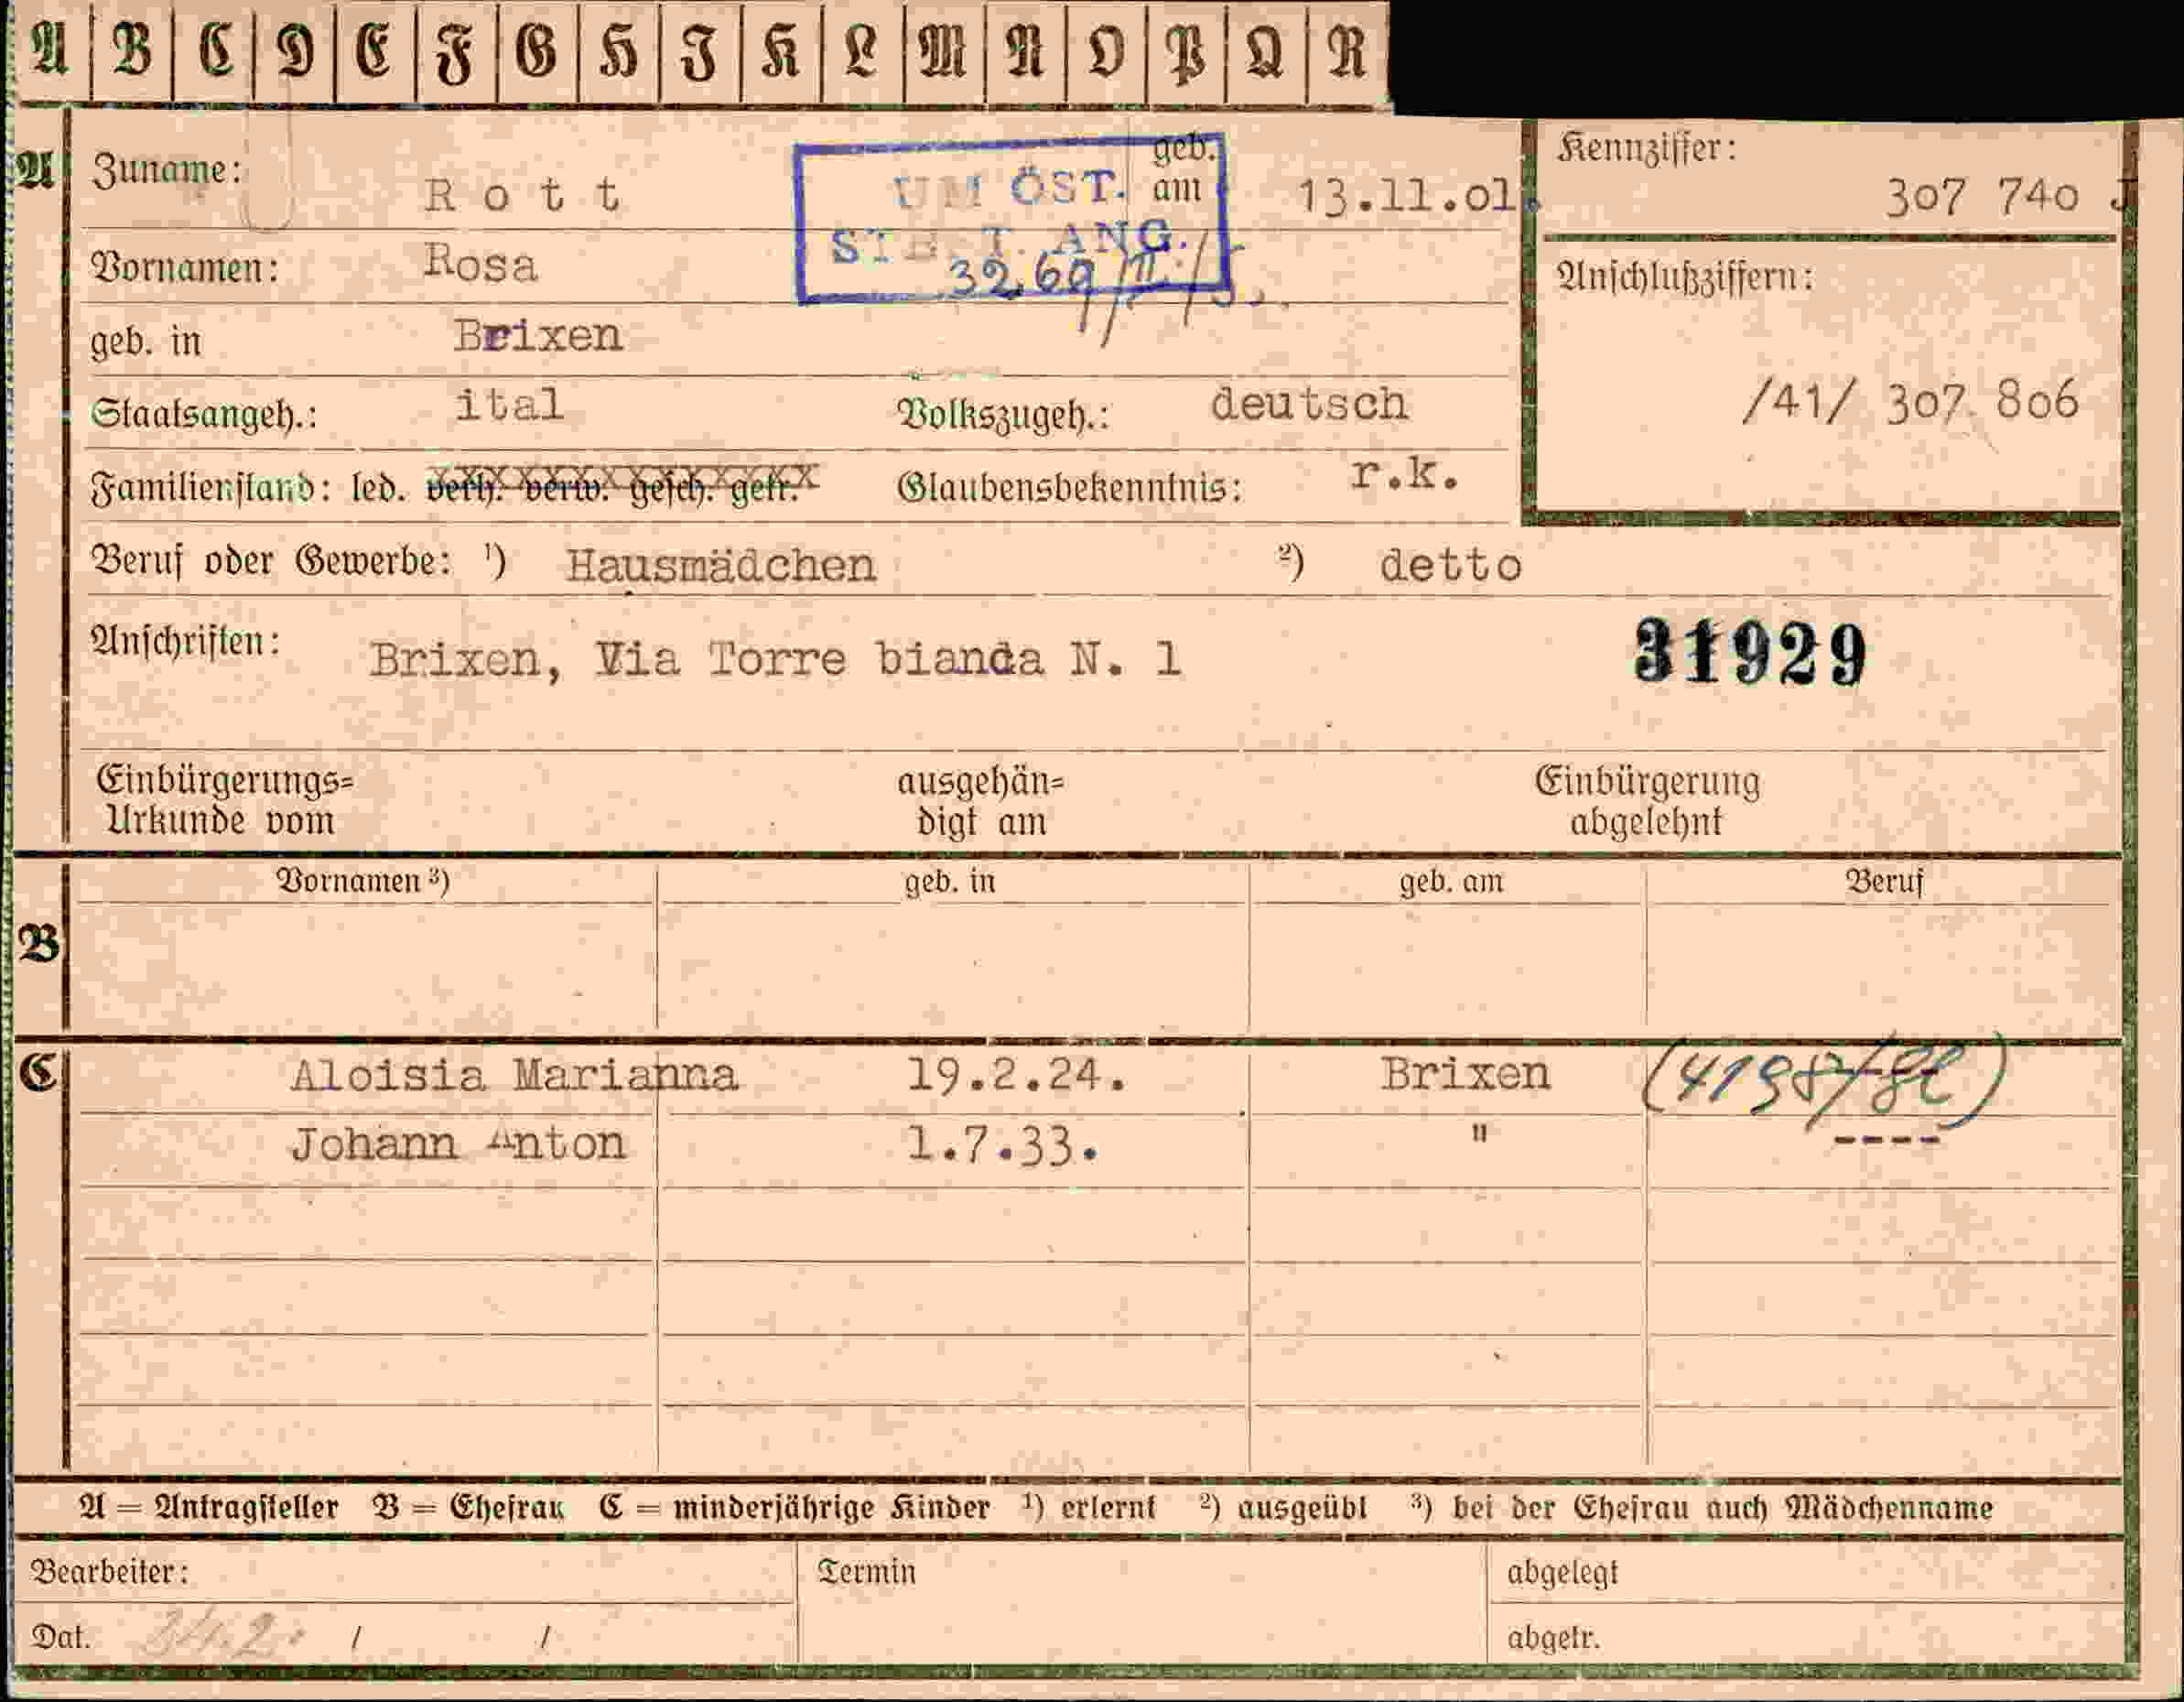 A B C D E F G H I K L M N O P Q R
A Zuname: Rott geb. am 13.11.01. Kennziffer: 307 740 J
UM ÖST.
ST. ANG.
Vornamen: Rosa
Anschlußziffern:
geb. in Brixen
Staatsangeh.: ital Volkszugeh.: deutsch /41/ 307 806
Familienstand: led. verh. verw. gesch. getr. Glaubensbekenntnis: r.k.
Beruf oder Gewerbe: ¹) Hausmädchen ²) detto
Anschriften: Brixen, Via Torre bianda N. 1 31929
Einbürgerungs= ausgehän= Einbürgerung
Urkunde vom digt am abgelehnt
Vornamen ³) geb. in geb. am Beruf
B
C Aloisia Marianna 19.2.24. Brixen
Johann Anton 1.7.33. " ----
A = Antragsteller B = Ehefrau C = minderjährige Kinder ¹) erlernt ²) ausgeübt ³) bei der Ehefrau auch Mädchenname
Bearbeiter: Termin abgelegt
Dat. / / abgetr.